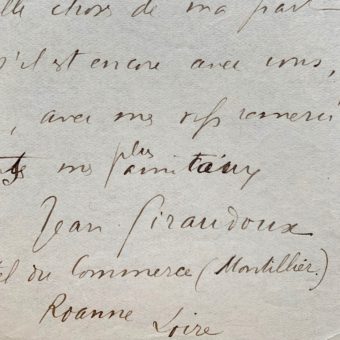 chose de ma part
s'il est encore avec vous,
, avec mes
mes plus
Jean Giraudoux
du Commerce (Montillier.)
Roanne
Loire